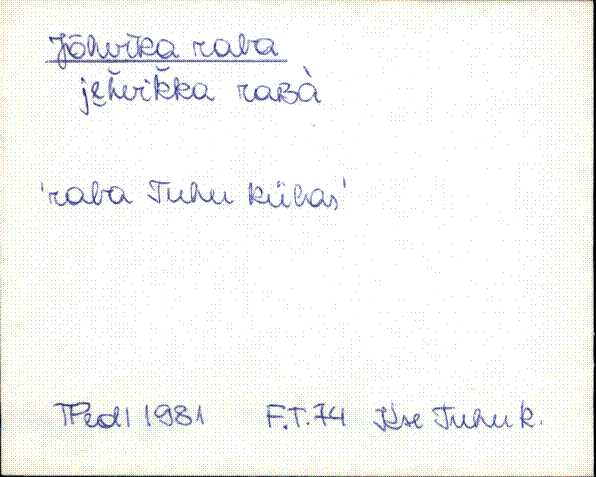 Jõhvika raba
jȩh̆vik̆ka raʙà
'raba Tuhu külas'
TPedI 1981 F.T.74 Kse Tuhu k.